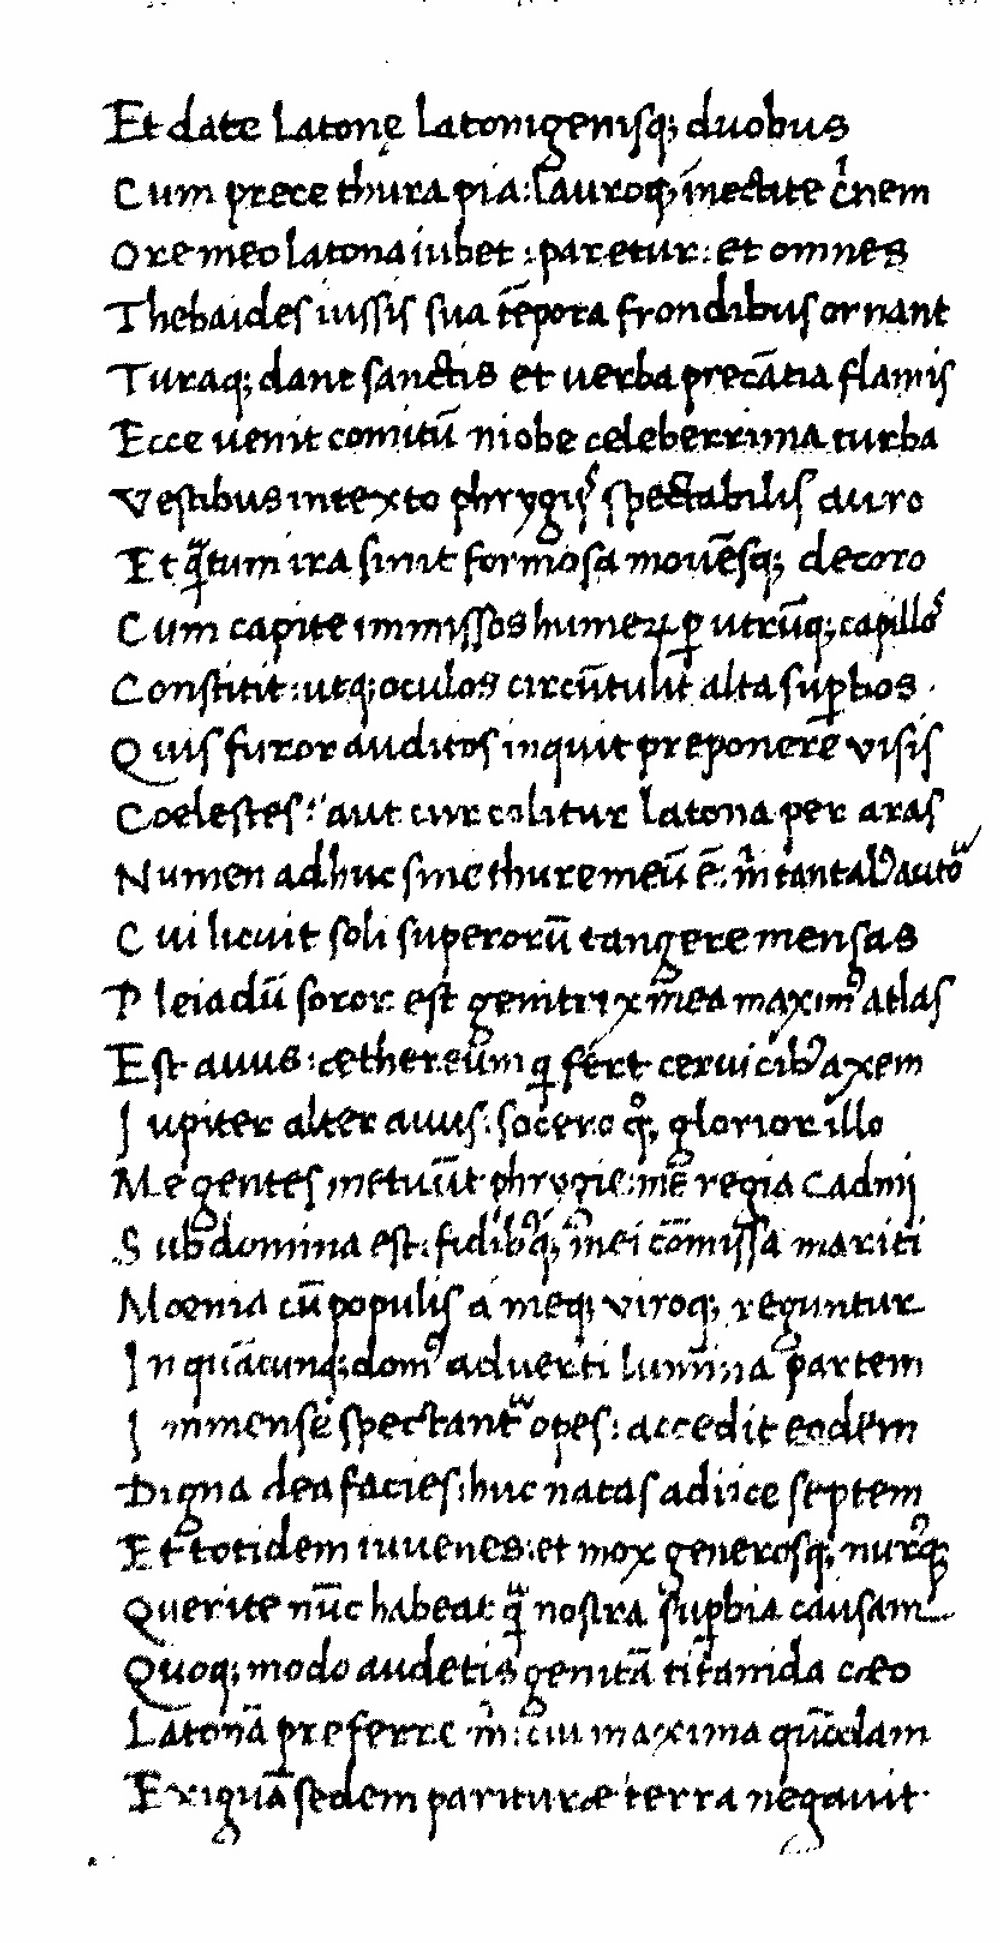 Et date Latonę Latonigenisq; duobus
Cum prece thura pia: lauroq; inectite c̊nem
Ore meo latona iubet: paretur: et omnes
Thebaides iussis sua tēpora frondibus ornant
Turaq; dant sanctis et verba precātia flamis
Ecce uenit comitū niobe celeberrima turba
Vestibus intexto phrygiis spectabilis auro
Et qᵃ̄tum ira sinit formosa mouēsq; decoro
Cum capite immissos humeꝝ ꝑ utrūq; capillos
Constitit: utq; oculos circūtulit alta suꝑbos.
Quis furor auditos inquit preponere visis
Coelestes: aut cur colitur latona per aras
Numen adhuc sine thure meū ē: m̊ tantalꝰ autoʳ
Cui licuit soli superorū tangere mensas
Pleiadū soror est genitrix mea maximꝰ atlas
Est auus: æthereum q̇ fert ceruicibꝰ axem
Iupiter alter auus: socero qͦq; glorior illo
Me gentes metuūt phrygie: me regia Cadmi
Sub domina est: fidibꝰq; mei cōmissa mariti
Moenia cū populis a meq; viroq; reguntur
In quācunq; domꝰ aduerti lumina partem
Immense spectantʳ opes: accedit eodem
Digna dea facies: huc natas adiice septem
Et totidem iuuenes: et mox generosq; nurꝰq;
Querite nūc habeat qᵃ̄ nostra suꝑbia causam
Quoq; modo audetis genitā titanida cæo
Latonā preferre m̊: cui maxima quōdam
Exiguā sedem parituræ terra negauit.